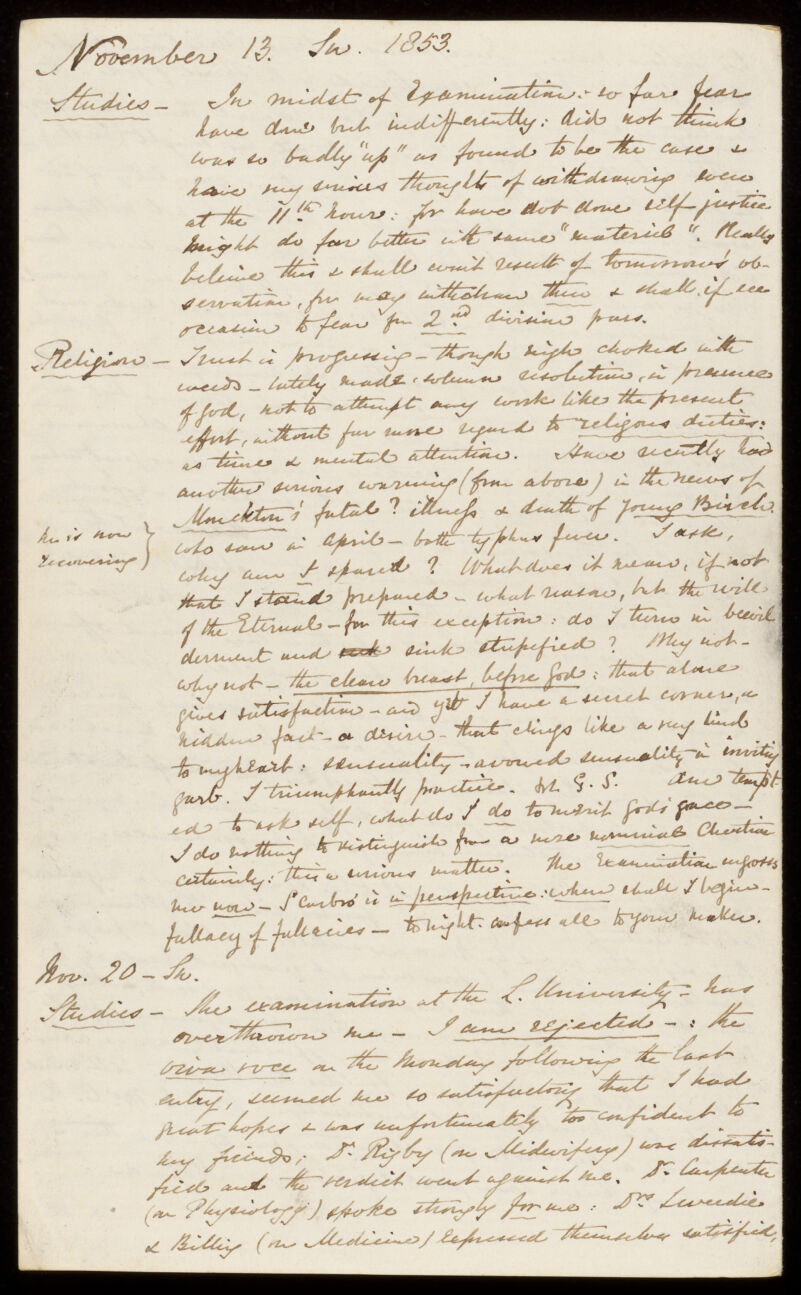 November 13. Su. 1853.
Studies - In midst of Examination: so far fear
have done but indifferently: did not think
was so badly "up" as found to be the case &
have my serious thoughts of withdrawing even
at the 11th hour: for have not done self justice
might do far better with same "materiel". Really
believe this & shall await result of tomorrow's ob-
servation, for may withdraw then & shall, if see
occasion to fear for 2nd division pass.
Religion - Trust is progressing - though nigh choked with
weeds - lately made solemn resolution, in presence
of God, not to attempt any work like the present
effort, without far more regard to religious duties:
as time & mental attention. Have recently had
another serious warning (from above) in the news of
Monckton's fatal? illness & death of young Birch
he is now
recovering }
who saw in April - both typhus fever. I ask,
why am I spared? What does it mean, if not
that I stand prepared - what reason, but the will
of the Eternal - for this exception: do I turn in bewil
derment and sink stupified? Why not -
why not - the clean breast, before God: that alone
gives satisfaction - and yet I have a secret corner, a
hidden fact - a desire - that clings like a very lind
to my heart: sensuality - avowed sensuality in inviting
garb. I triumphantly practice. G. S. Am tempt-
ed to ask self, what do I do to merit God's grace -
I do nothing to distinguish from a mere nominal Christian
certainly: this a serious matter. The Examination engrosses
me now - Scarbro' is in perspective: when shall I begin -
fallacy of fallacies - to night: confess all to your maker.
Nov. 20 - Su.
Studies - The examination at the L. University - has
overthrown me - I am rejected -: the
viva voce on the Monday following the last
entry, seemed me so satisfactory that I had
great hopes & was unfortunately too confident to
my friends: Dr. Rigby (on Midwifery) was dissatis-
fied and the verdict went against me. Dr. Carpenter
(on Physiology) spoke strongly for me: Drs Tweedie
& Billing (on Medicine) expressed themselves satisfied,